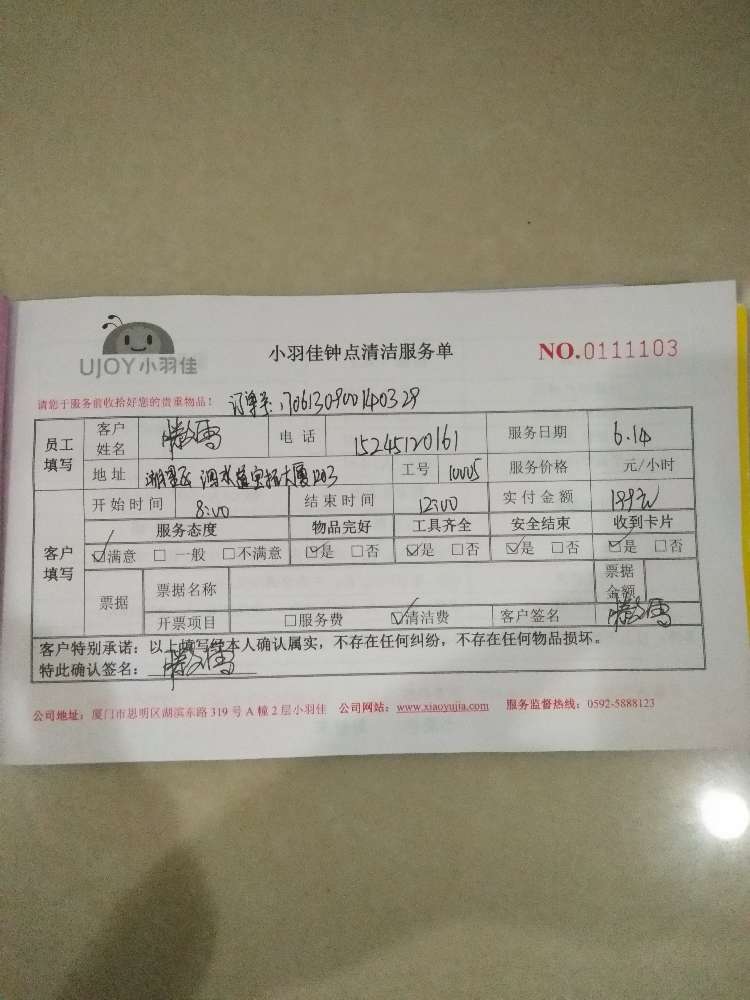 UJOY小羽佳
小羽佳钟点清洁服务单
NO.0111103
请您于服务前收拾好您的贵重物品!
员工填写 客户姓名 电话 15245120161 服务日期 6.14
地址 1203 工号 10005 服务价格 元/小时
客户填写 开始时间 8:00 结束时间 12:00 实付金额 199元
服务态度 物品完好 工具齐全 安全结束 收到卡片
☑满意 □一般 □不满意 ☑是 □否 ☑是 □否 ☑是 □否 ☑是 □否
票据 票据名称 票据金额
开票项目 □服务费 ☑清洁费 客户签名
客户特别承诺:以上填写经本人确认属实,不存在任何纠纷,不存在任何物品损坏。
特此确认签名:
公司地址:厦门市思明区湖滨东路319号A幢2层小羽佳 公司网站:www.xiaoyujia.com 服务监督热线:0592-5888123